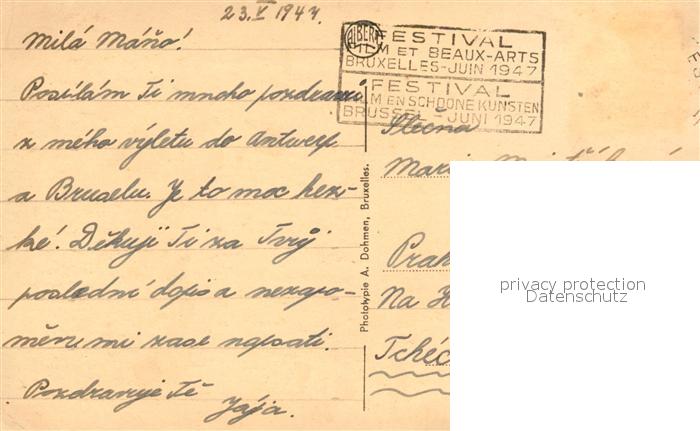 23.V 1947.
Milá Máňo!
Posílám Ti mnoho pozdravů
z mého výletu do Antverp
a Bruselu. Je to moc hez-
ké! Děkuji Ti za Tvůj
poslední dopis a nezapo-
měn mi zase napsati.
Pozdravuje Tě
Jája.
ALBERT II
FESTIVAL
M ET BEAUX-ARTS
BRUXELLES-JUIN 1947
FESTIVAL
LM EN SCHOONE KUNSTEN
BRUSSEL - JUNI 1947
Slečna
Mari
Prah
Na
Tchéc
Phototypie A. Dohmen, Bruxelles.
privacy protection
Datenschutz